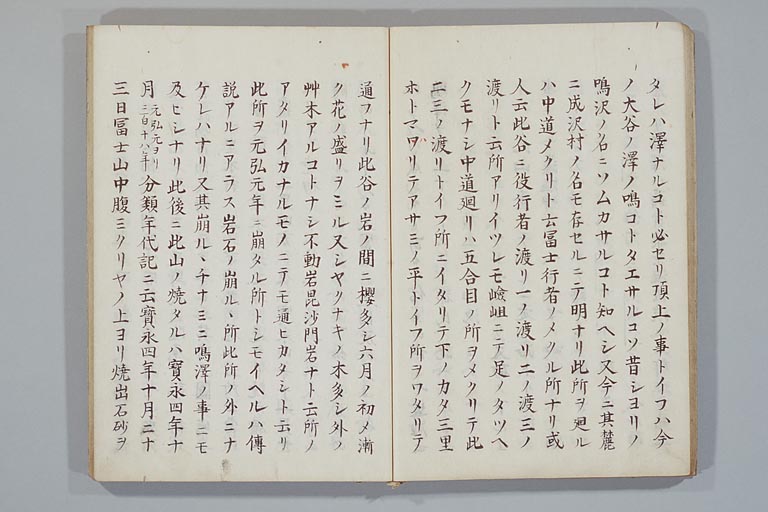 タレハ澤ナルコト必セリ頂上ノ事トイフハ今
ノ大谷ノ澤ノ鳴コトタエサルコソ昔シヨリノ
鳴沢ノ名ニソムカサルコト知ヘシ又今ニ其麓
ニ成沢村ノ名モ存セルニテ明ナリ此所ヲ廻ル
ハ中道メクリト云冨士行者ノメクル所ナリ或
人云此谷ニ役行者ノ渡リ一ノ渡リ二ノ渡三ノ
渡リト云所アリイツレモ嶮岨ニテ足ノタツヘ
クモナシ中道廻リハ五合目ノ所ヲメクリテ此
二三ノ渡リトイフ所ニイタリテ下ノカタ三里
ホトマワリテアサミノ平トイフ所ヲワタリテ
通フナリ此谷ノ岩ノ間ニ櫻多シ六月ノ初メ漸
ク花ノ盛リヲミル又シヤクナキノ木多シ外ノ
艸木アルコトナシ不動岩毘沙門岩ナト云所ノ
アタリイカナルモノニテモ通ヒカタシト云リ
此所ヲ元弘元年ニ崩タル所トシモイヘルハ傳
説アルニアラス岩石ノ崩ルヽ所此所ノ外ニナ
ケレハナリ又其崩ルヽチナミニ鳴澤ノ事ニモ
及ヒシナリ此後ニ此山ノ焼タルハ寳永四年十
月元弘元ヨリ三百十八年分類年代記ニ云寳永四年十月二十
三日冨士山中腹ミクリヤノ上ヨリ焼出石砂ヲ